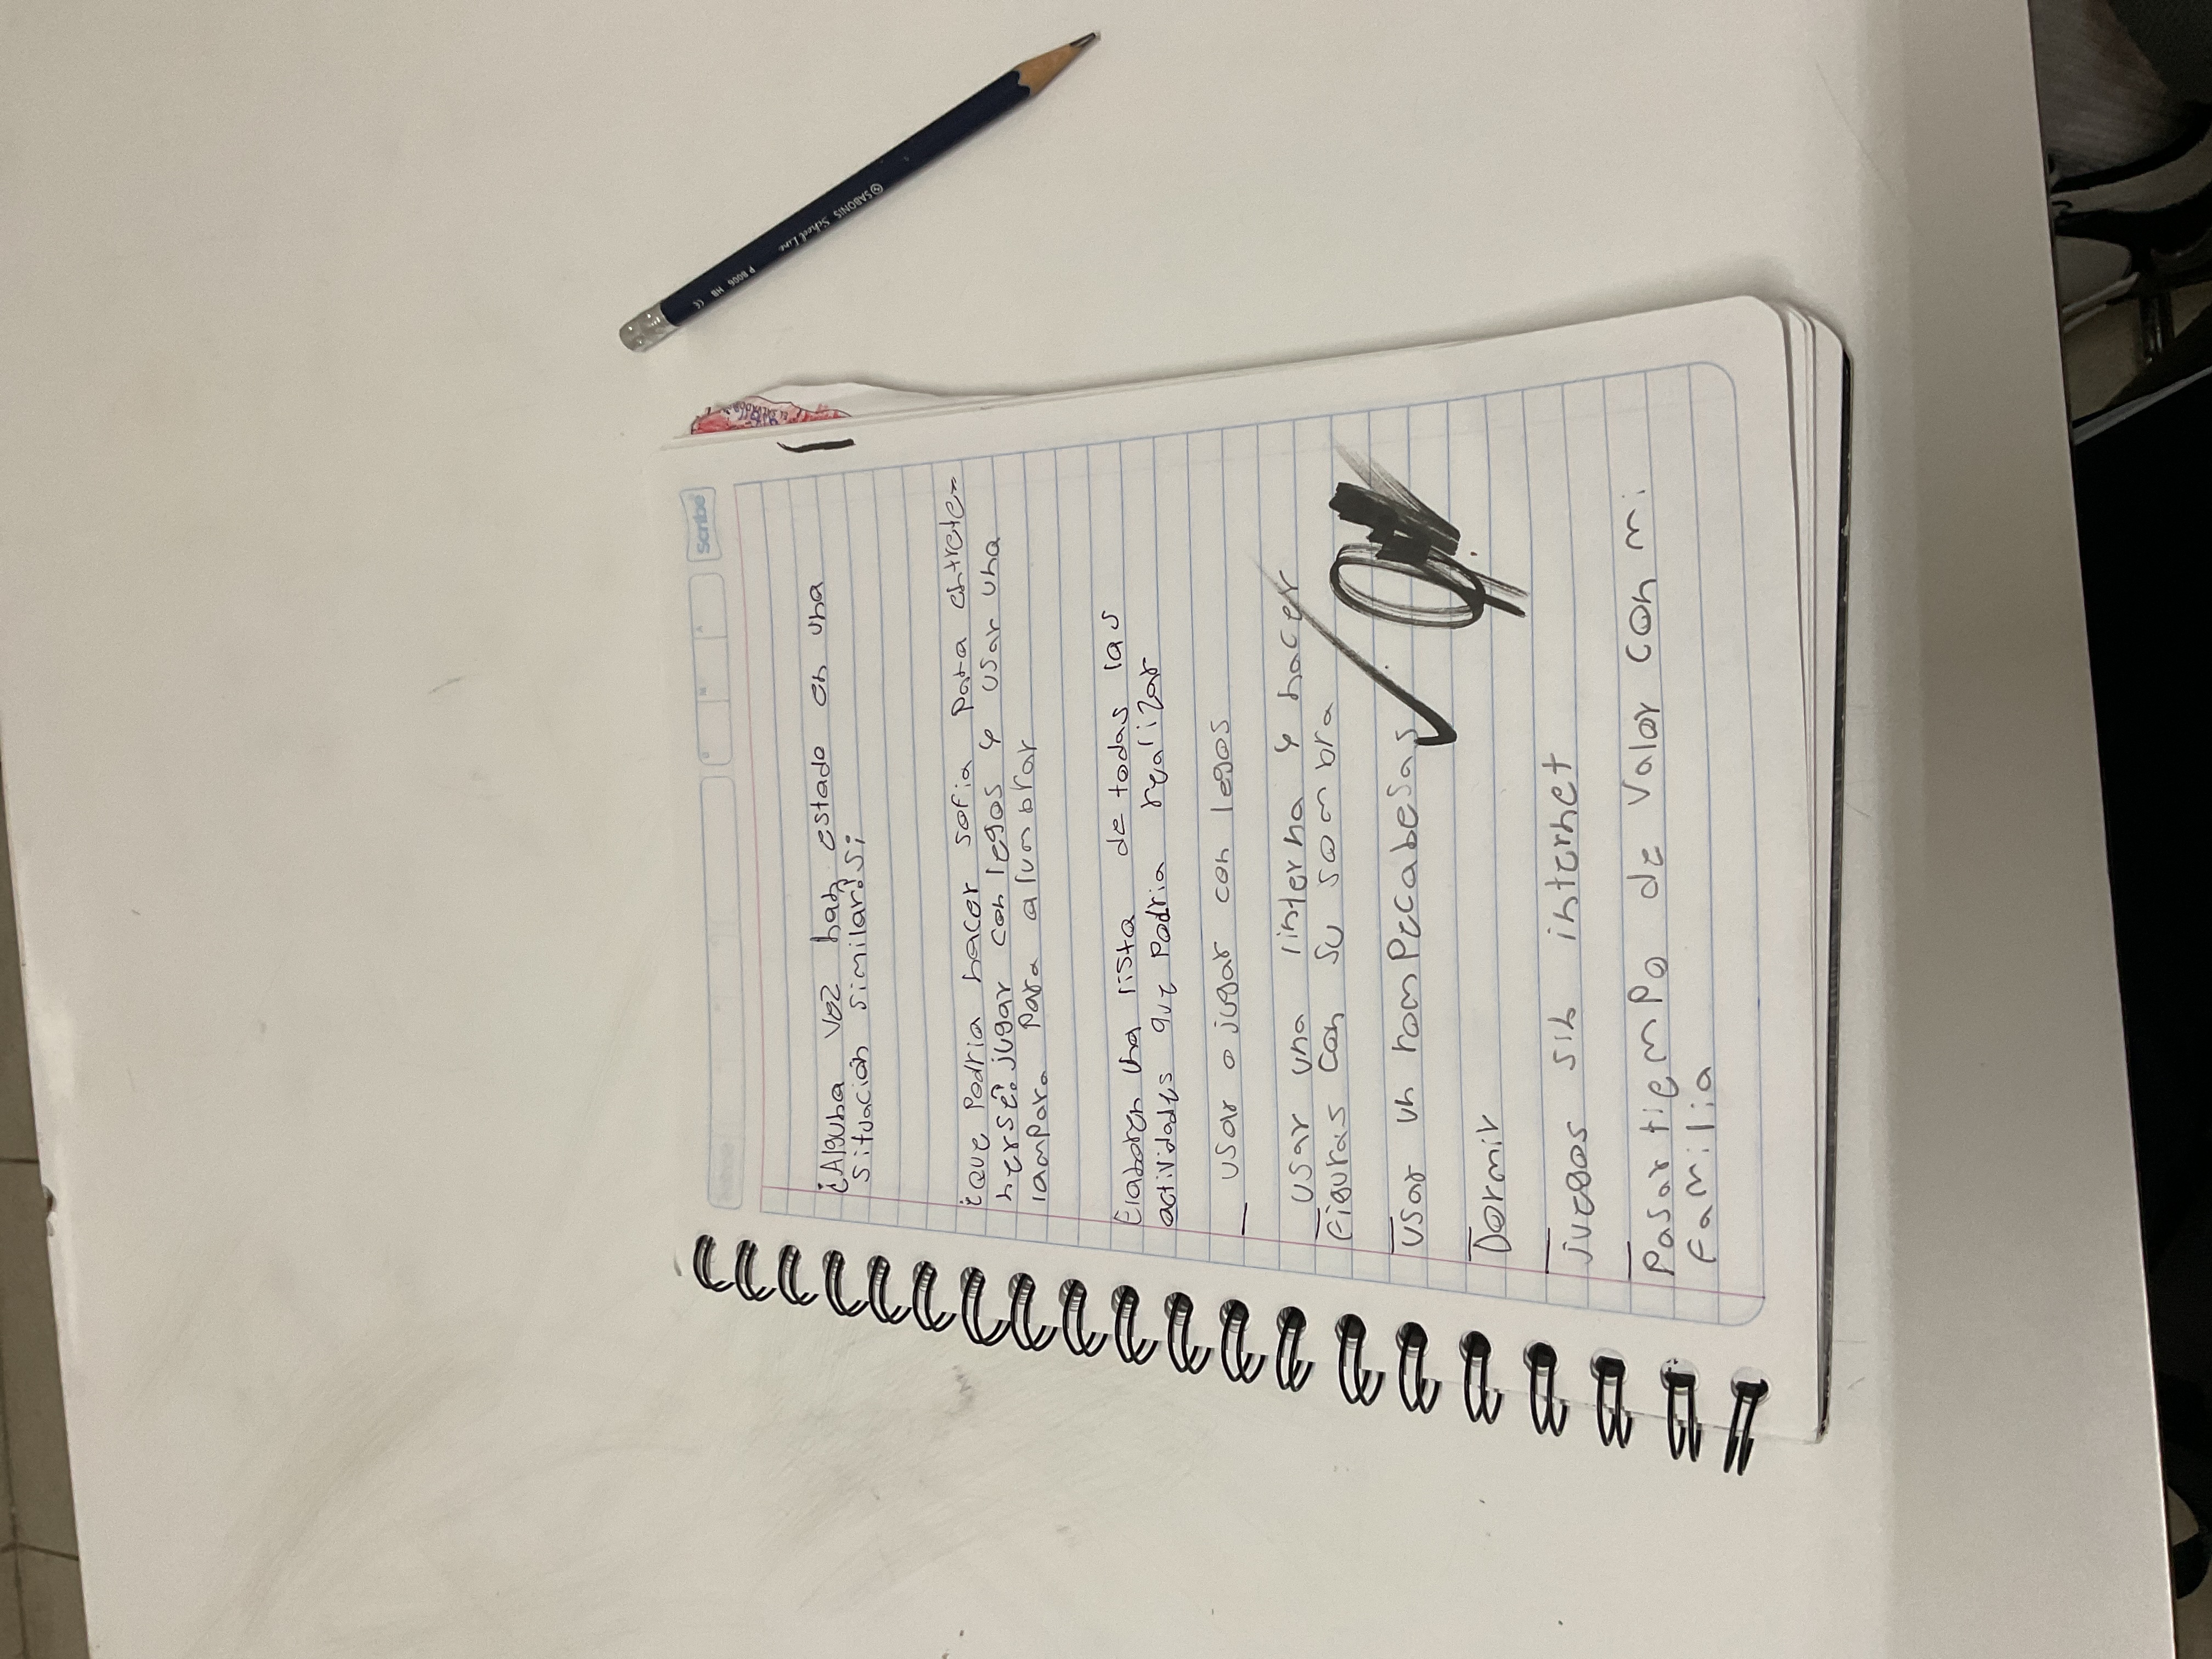 scribe
¿Alguna vez han estado en una
situación similar? si
¿que podria hacer sofia para entrete-
nerse? jugar con legos y usar una
lampara para alumbrar
Elaboren una lista de todas las
actividades que podria realizar
_ usar o jugar con legos
_ usar una linterna y hacer
figuras con su sombra
_ usar un rompecabesas
_ Dormir
_ juegos sin internet
_ Pasar tiempo de valor con mi
familia
SABONIS School Line P 8006 HB
EL SALVADOR